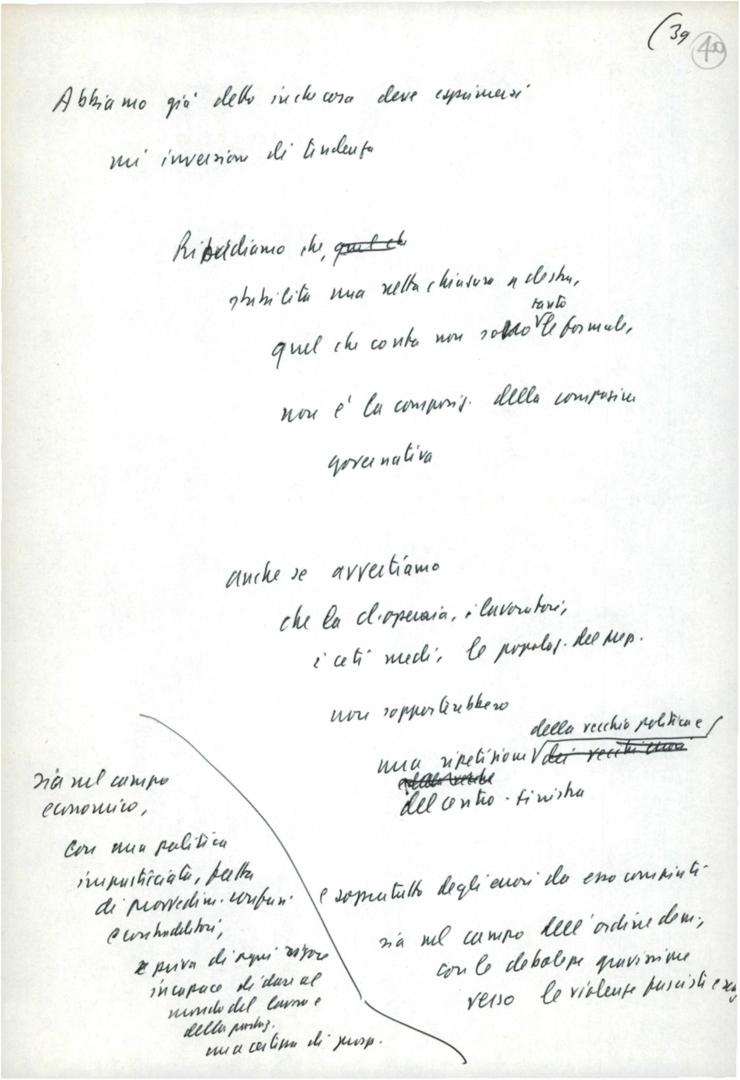 (39 40
Abbiamo già detto in che cosa deve esprimersi
un'inversione di tendenza
Ribadiamo che, quel che
stabilita una netta chiusura a destra,
tanto
quel che conta non le formule,
non è la compos. della composiz.
governativa
anche se avvertiamo
che la cl. operaia, i lavoratori,
i ceti medi, le popolaz. del Mep.
non sopporterebbero
della vecchia politica e
una ripetizione dei vecchi errori
del centro-sinistra
e soprattutto degli errori da esso compiuti
sia nel campo dell'ordine dem.,
con le debolezze gravissime
verso le violenze fasciste e
sia nel campo
economico,
con una politica
impasticciata, fatta
di provvedim. confusi
e contradditori,
e priva di ogni rigore
incapace di dare al
mondo del lavoro e
della
una certezza di prosp.